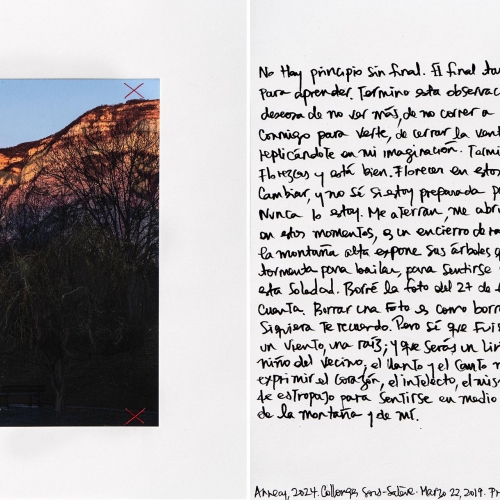 No Hay principio sin final. El final
para aprender. Termino esta
deseosa de no ver más, de no correr a
conmigo para verte, de cerrar la
replicándote en mi imaginación.
Florezcas y está bien. Florecer en estos
cambiar, y no sé si estoy preparada
Nunca lo estoy. Me aterran, me
en estos momentos, es un encierro de
la montaña alta expone sus árboles
tormenta para bailar, para sentirse
esta soledad. Borré la foto del 27 de
cuenta. Borrar una foto es como
siquiera te recuerdo. Pero sé que
un viento, una raíz; y que serás un
niño del vecino, el llanto y el canto
exprimir el corazón, el intelecto, el
de estropajo para sentirse en medio
de la montaña y de mí.
Annecy, 2024. Collonges Sous-Salève. Marzo 22, 2019.